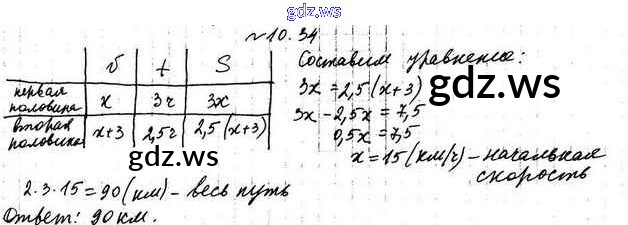 gdz.ws
№10.34
v t S
первая половина x 3ч 3x
вторая половина x+3 2,5ч 2,5(x+3)
Составим уравнение:
3x = 2,5(x+3)
3x - 2,5x = 7,5
0,5x = 7,5
x = 15 (км/ч) - начальная
скорость
gdz.ws
gdz.ws
2·3·15 = 90 (км) - весь путь
Ответ: 90 км.
gdz.ws